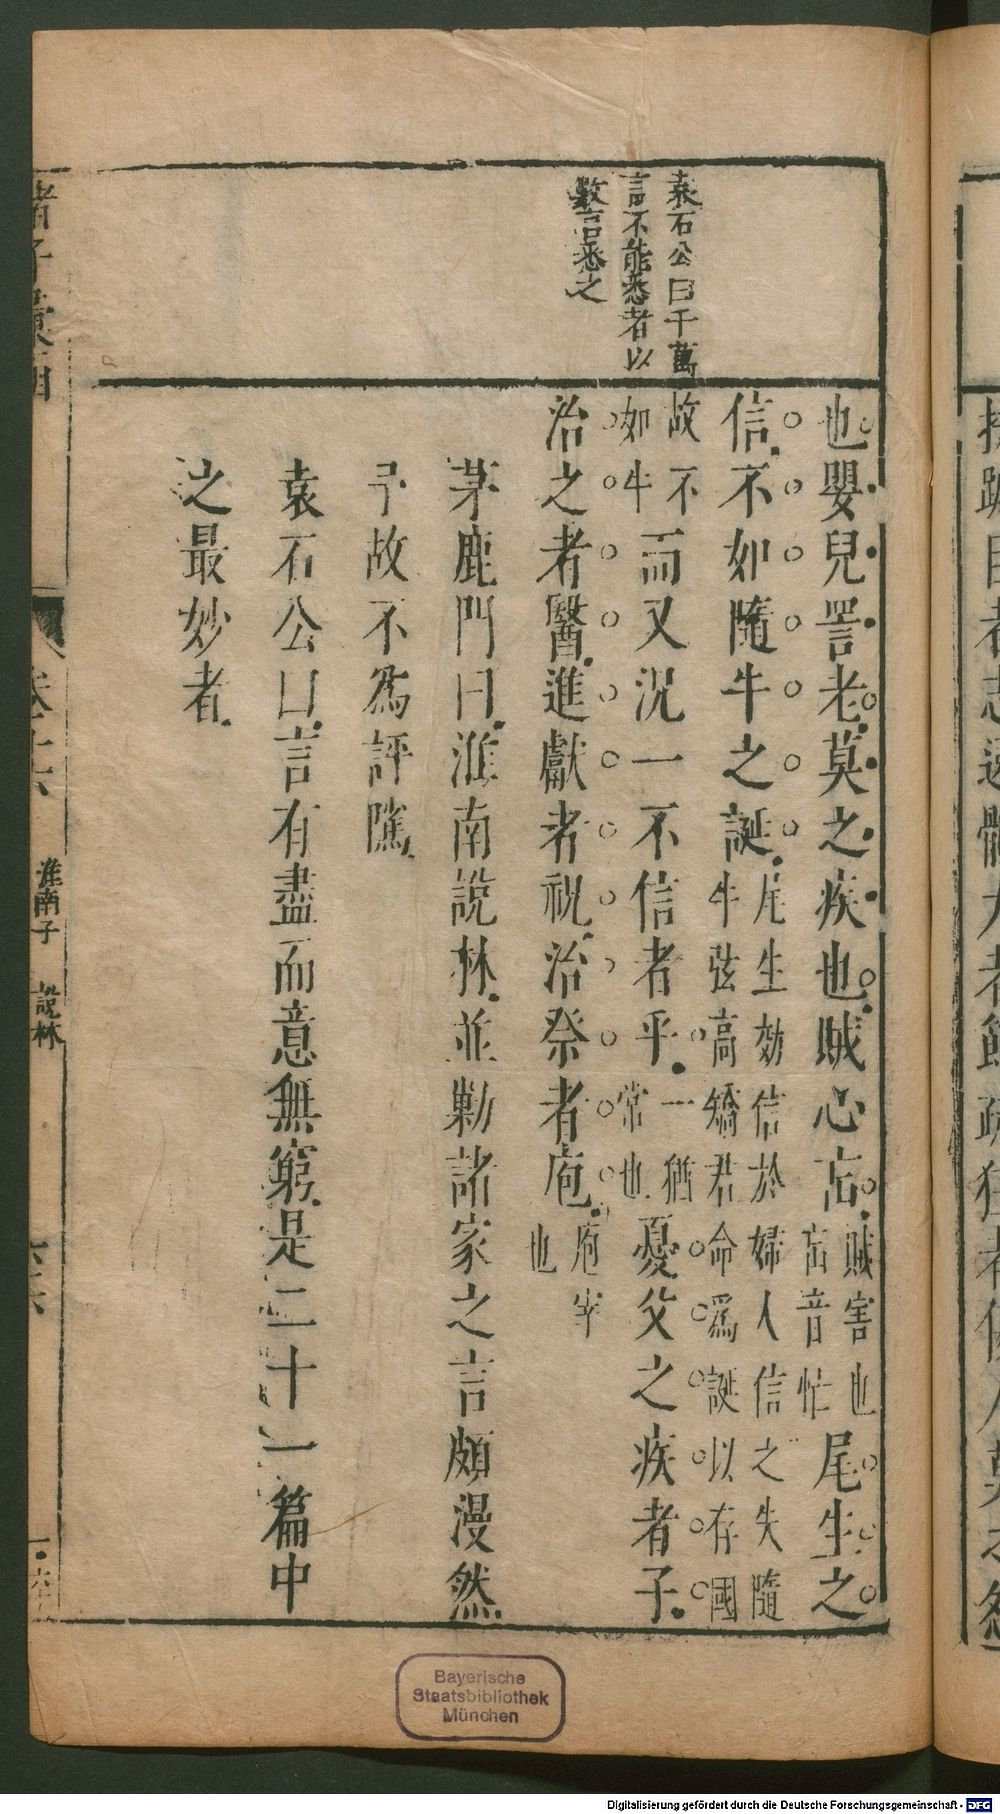 袁石公曰千萬
言不能悉者以
數言悉之
也嬰兒詈老莫之疾也賊心𢗅賊害也𢗅音忙尾生之
信不如隨牛之誕尾生効信於婦人信之失隨牛弦高矯君命爲誕以存國
故不如牛而又況一不信者乎一猶常也憂父之疾者子
治之者醫進獻者祝治祭者庖庖宰也
茅鹿門曰淮南說林並勦諸家之言頗漫然
予故不爲評隲
袁石公曰言有盡而意無窮是二十一篇中
之最妙者
淮南子 說林
Bayerische
Staatsbibliothek
München
Digitalisierung gefördert durch die Deutsche Forschungsgemeinschaft - DFG